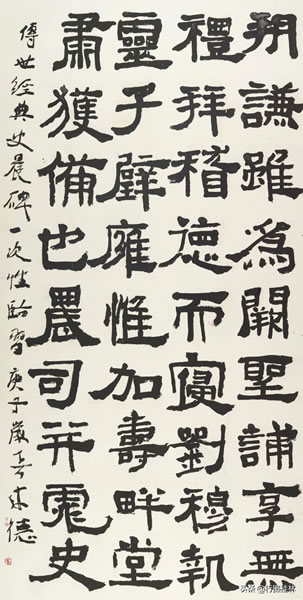 朔謙雖為闕聖誦享無
禮拜稽德而寑劉穆執
靈子辟廱惟加壽畔堂
肅獲備也農司并史
傳世經典史晨碑一次性臨習庚子歲德
头条